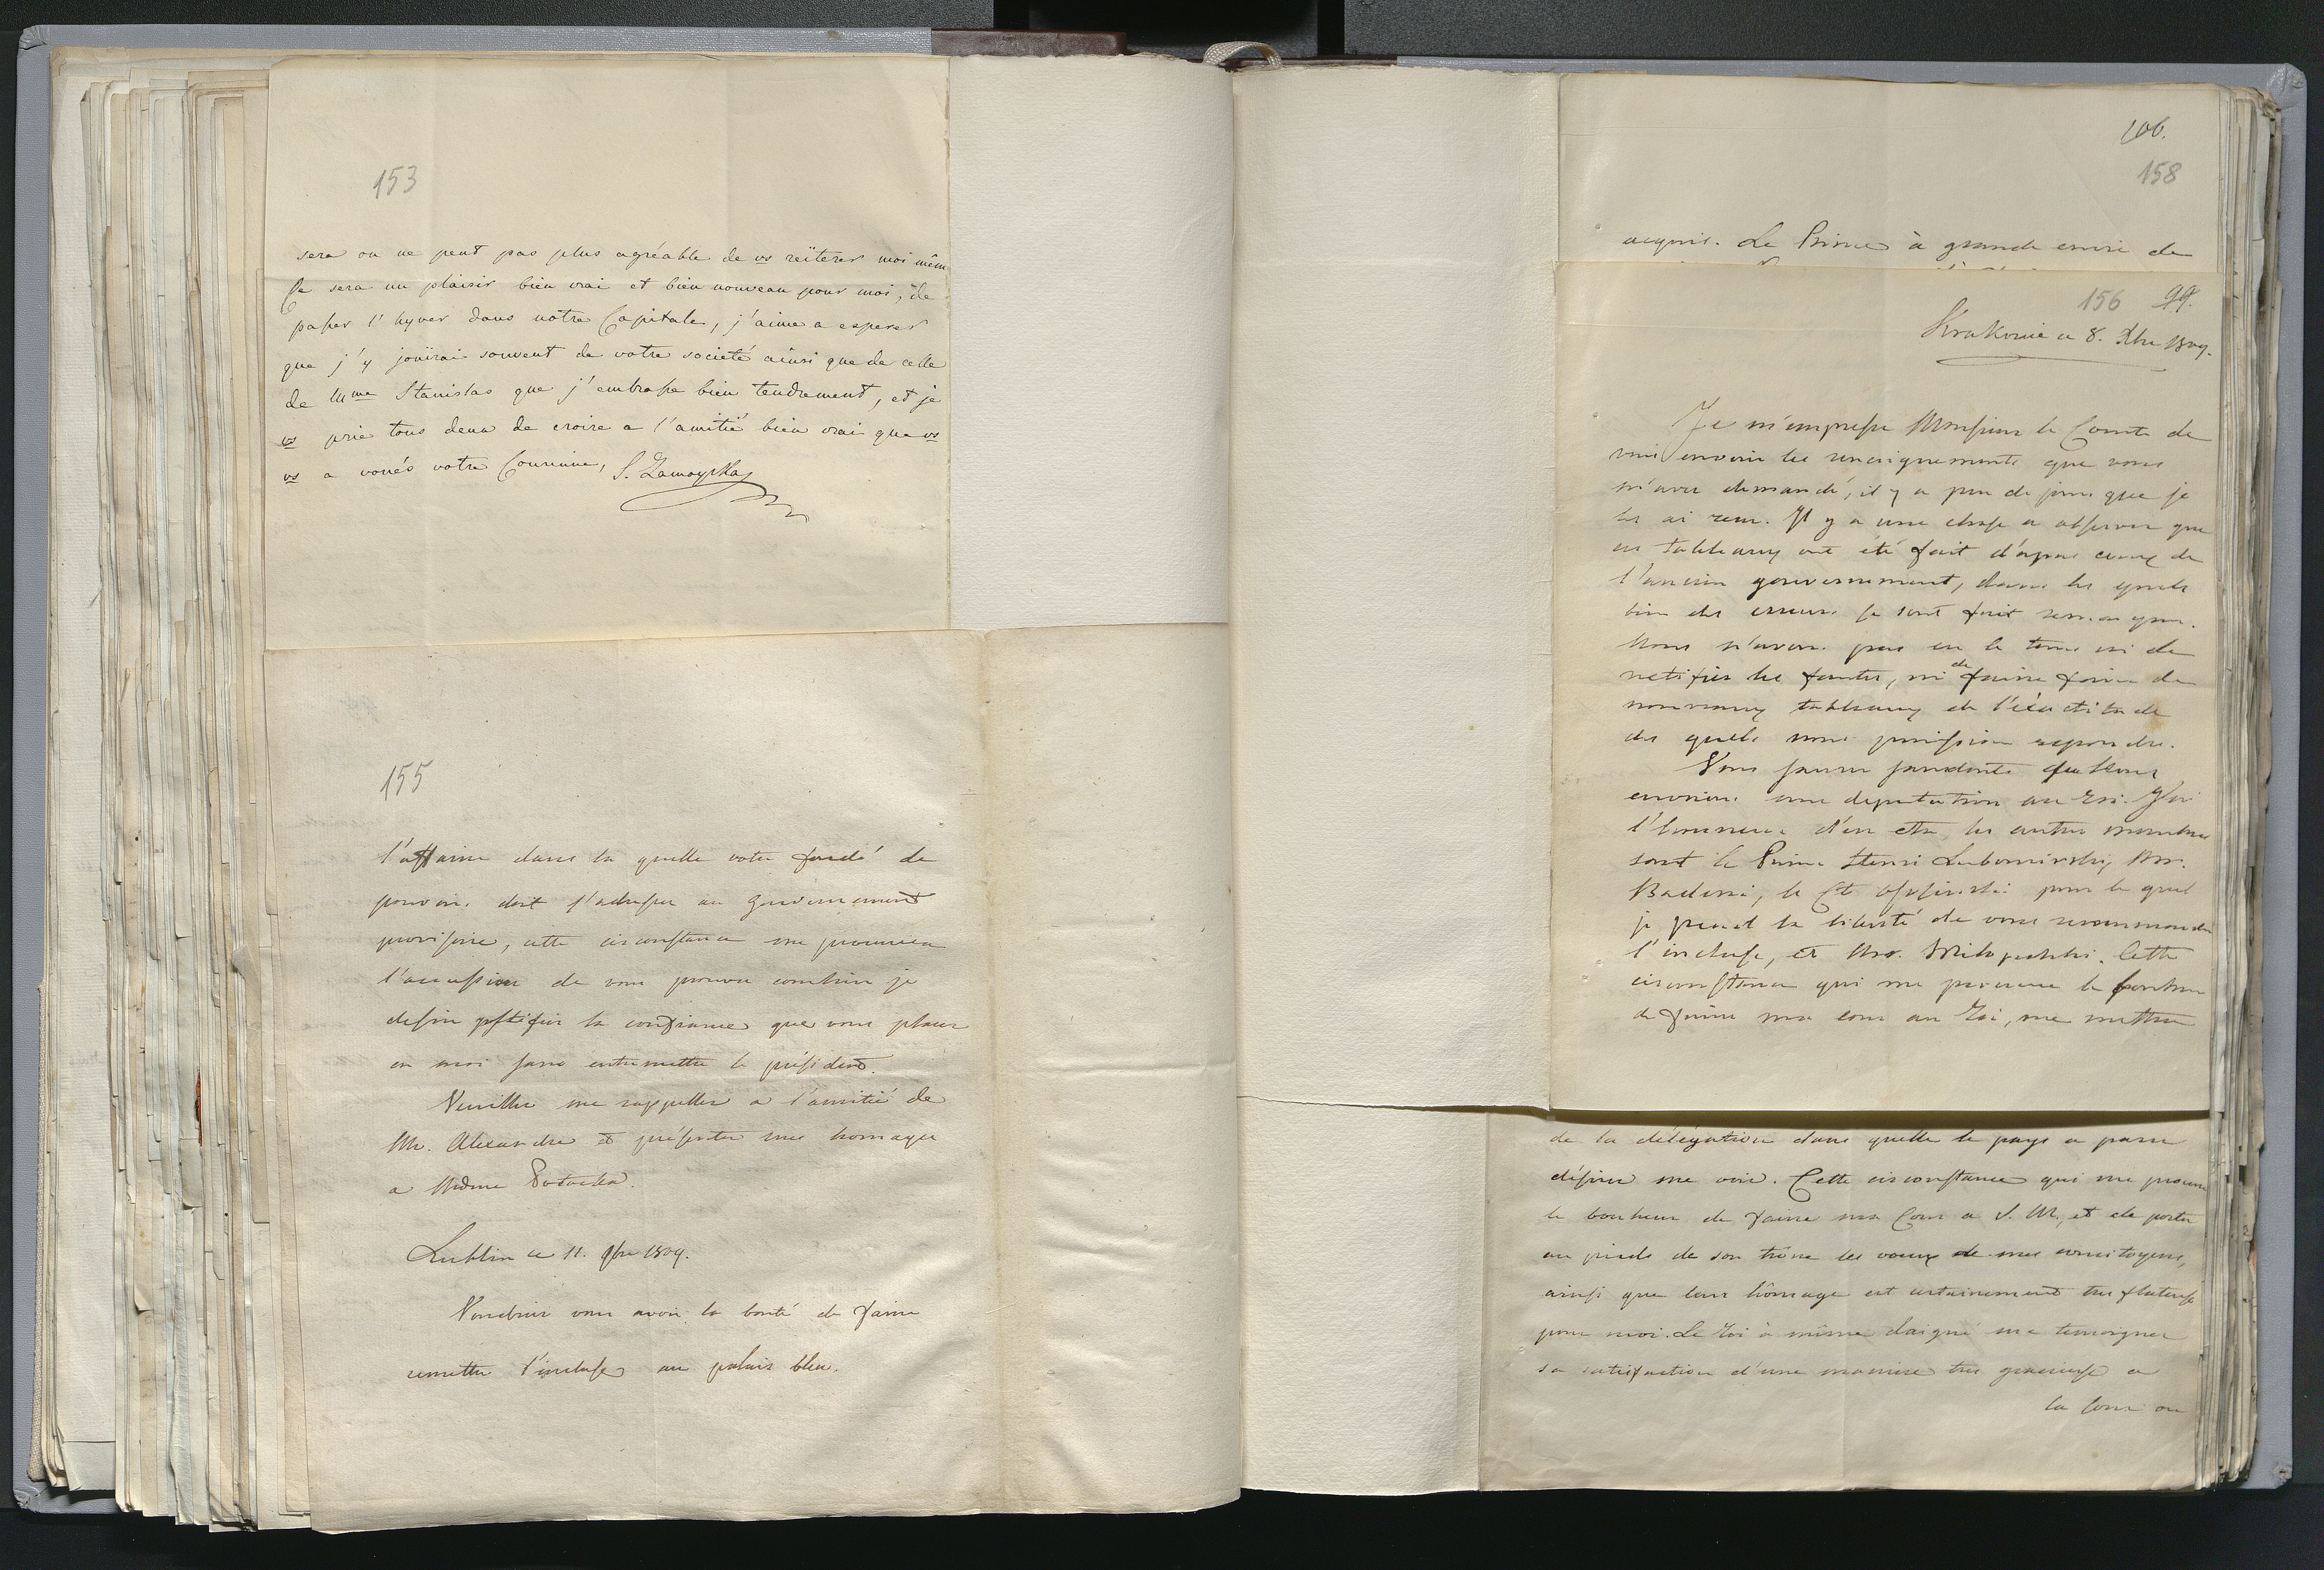 153
sera on ne peut pas plus agréable de vs reïterer moi même
Ce sera un plaisir bien vrai et bien nouveau pour moi, de
passer l'hyver dans notre Capitale, j'aime a esperer
que j'y joüirai souvent de votre societé ainsi que de celle
de Mme Stanislas que j'embrasse bien tendrement, et je
vs prie tous deux de croire a l'amitié bien vrai que vs
vs a voués votre Cousine, S. Zamoyska
155
l'affaire dans la quelle votre fondé de
pouvoir doit s'adresser au gouvernement
provisoire, cette circonstance me procurera
l'occassion de vous prouver combien je
desire justifier la confiance que vous placez
en moi sans entremettre le président.
Veuillez me rappeller a l'amitié de
Mr. Alexandre et présenter mes homages
a Mdme Potocka.
Lublin ce 11. 9bre 1809.
Voudriez vous avoir la bonté de faire
remettre l'incluse au palais bleu.
106.
158
acquis. Le Prince à grande envie de
156 99.
Krakovie ce 8. Xbre 1809.
Je m'empresse Monsieur le Comte de
vous envoier les renseignements que vous
m'avez demandé, il y a peu de jours que je
les ai reçu. Il y a une chose a observer que
ces tableaux ont été fait d'apres ceux de
l'ancien gouvernement, dans les quels
bien des erreurs se sont fait remarquer.
Nous n'avons pas eu le tems ni de
rectifier les fautes, ni de faire faire de
nouveaux tableaux de l'éxactitude
des quels nous puissions repondre.
Vous saurez sans doute que nous
envoions une deputation au Roi. J'ai
l'honneur d'en etre, les autres membres
sont le Prince Henri Lubomirski, Mr.
Badeni, le Ct. Ossolinski pour le quel
je prend la liberté de vous recommander
l'incluse, et Mr. Wielopolski. Cette
circonstance qui me procure le bonheur
de faire ma cour au Roi, me mettra
de la délégation dans quelle le pays a paru
désirer me voir. Cette circonstance qui me procure
le bonheur de faire ma Cour a S. M., et de porter
au pieds de son trône les voeux de mes concitoyens,
ainsi que leur hômage est certainement tres flateuse
pour moi. Le Roi à même daigné me temoigner
sa satisfaction d'une maniere tres gracieuse a
la Cour ou